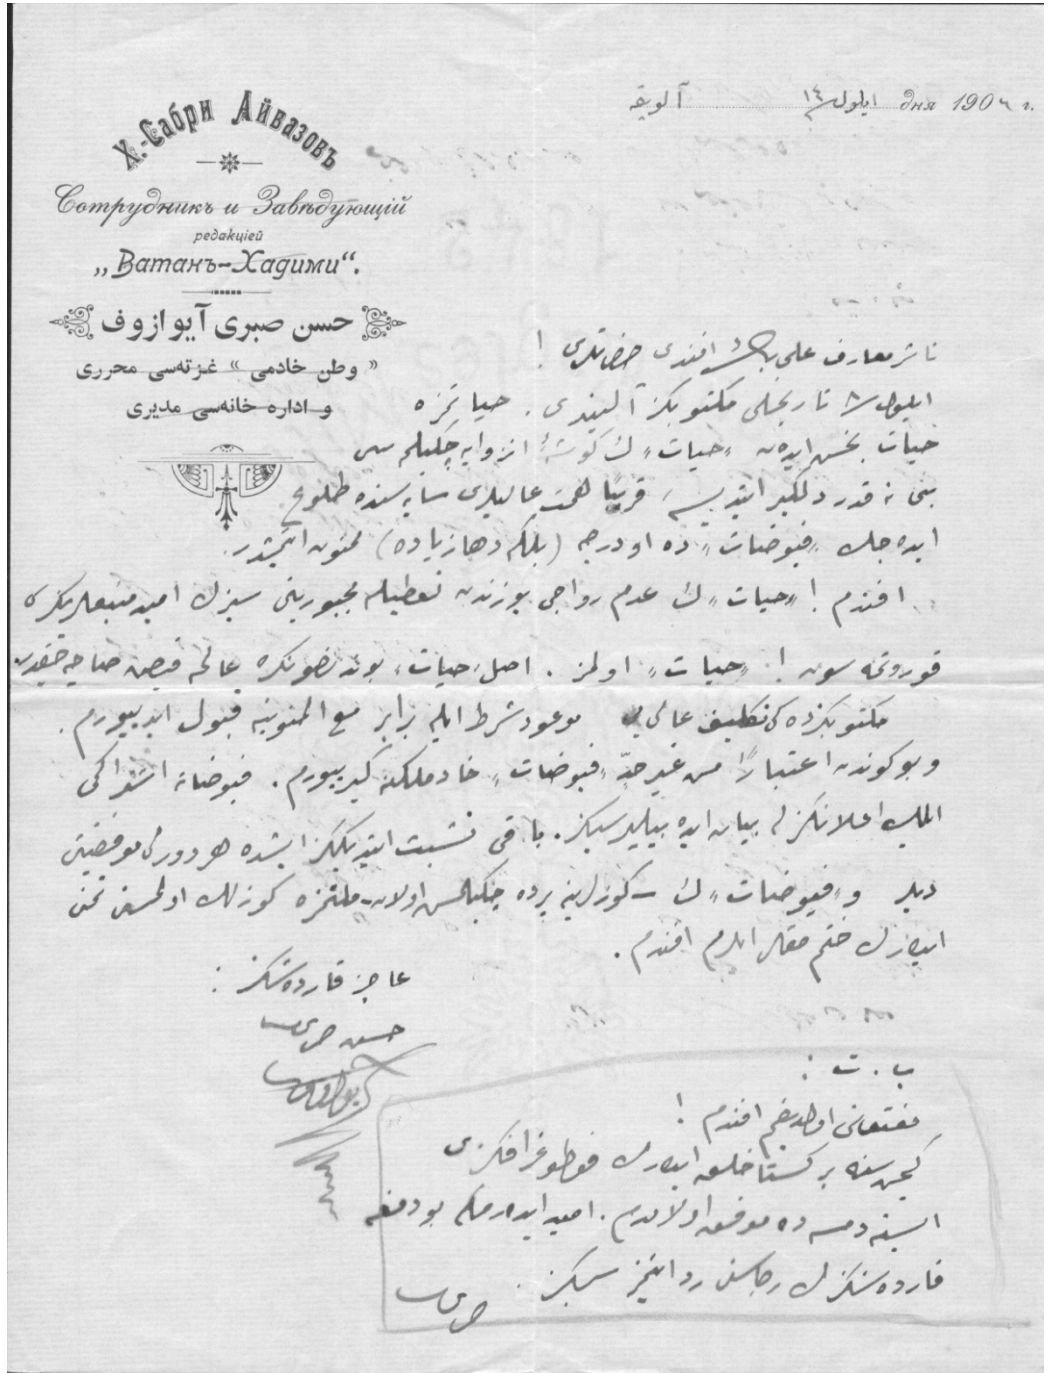 Х.-Сабри Айвазовъ
Сотрудникъ и Завѣдующій
редакціей
„Ватанъ-Хадими“.
حسن صبری آیوازوف
« وطن خادمی » غزته‌سی محرری
و اداره خانه‌سی مدیری
آلوپقه ایلول ١٤ дня 190٦ г.
ناشر معارف علی بك افندی حضرتلری !
ایلول ٨ تاریخلی مكتوبكز آلیندی . حیاتمزه
حیات بخش ایدن «حیات» ك كوشهٔ انزوایه چكیلمه سی
بنی نه قدر دلگیر ایتدیسه، قریبًا همت عالیلری سایه سنده طلوع
ایده جك «فیوضات» ده او درجه (بلكه دها زیاده) ممنون ایتمشدر.
افندم ! «حیات» ك عدم رواجی یوزندن تعطیله مجبوریتی سزك امید
قوروتمه سون ! «حیات» اولمز . اصل «حیات» بوندنصوكره عالمه
مكتوبكزده كی تكلیف عالی یی موعود شرط ایله برابر مع الممنونیه قبول ایدییورم .
و بوكوندن اعتبارًا من غیر حدّ «فیوضات» خادملكنه كیرییورم . فیوضاته اشتراكی
اعلانكزله بیان ایده بیلیرسیكز . باقی تشبث ایتدیككز ایشده هر دورلی موفقیتلر
دیلر و «فیوضات» ك – كوزلرینه پرده چكیلمش اولان – ملتمزه كوزلك اولمسنی تمنی
ایدرك ختم مقال ایلرم افندم .
عاجز قارده‌شكز :
حسن صبری
آیوازوف
ب . ت :
افندم !
كچن سنه بر كستاخلق ایدرك فوطوغرافكزی
ایسته دمسه ده موفق اولامدم . امید ایدرمكه بو دفعه
قارده شكزك رجاسنی رد ایتمز سیكز .
صبری